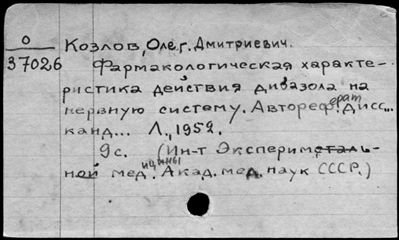 О
37026
Козлов, Олег Дмитриевич.
Фармакологическая характе-
ристика действия дибазола на
нервную систему. Автореферат дисс...
канд... Л., 1952.
9 с. (Ин-т Эксперименталь-
ной медицины Акад. мед. наук СССР.)